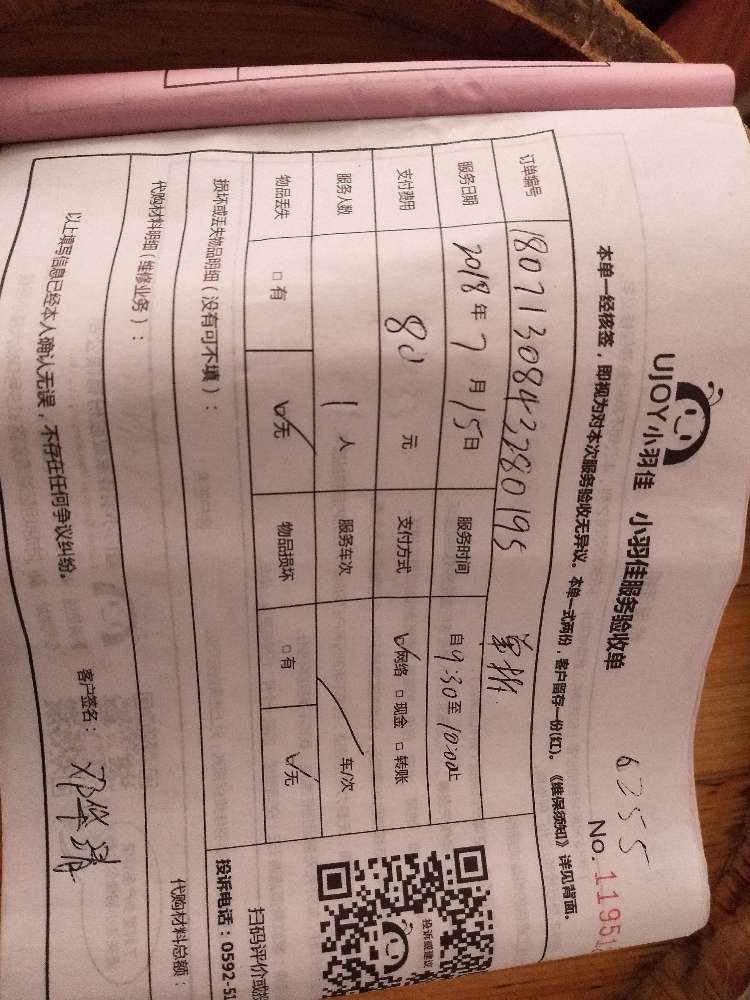 UJOY小羽佳 小羽佳服务验收单
6255
No. 11951
本单一经核签，即视为对本次服务验收无异议。本单一式两份，客户留存一份(红)。《维保须知》详见背面。
订单编号 18071308433280195 单拆
服务日期 2018年7月15日 服务时间 自9:30至10:00止
支付费用 80元 支付方式 ☑网络 □现金 □转账
服务人数 1人 服务车次 车/次
物品丢失 □有 ☑无 物品损坏 □有 ☑无
投诉或建议
扫码评价或投
损坏或丢失物品明细（没有可不填）：
投诉电话：0592-51
代购材料明细（维修业务）：
代购材料总额：
以上填写信息已经本人确认无误，不存在任何争议纠纷。
客户签名：